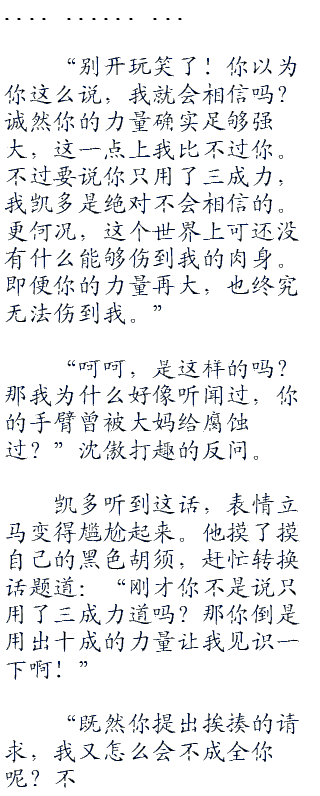 .... ...... ...
“别开玩笑了！你以为
你这么说，我就会相信吗？
诚然你的力量确实足够强
大，这一点上我比不过你。
不过要说你只用了三成力，
我凯多是绝对不会相信的。
更何况，这个世界上可还没
有什么能够伤到我的肉身。
即便你的力量再大，也终究
无法伤到我。”
“呵呵，是这样的吗？
那我为什么好像听闻过，你
的手臂曾被大妈给腐蚀
过？”沈傲打趣的反问。
凯多听到这话，表情立
马变得尴尬起来。他摸了摸
自己的黑色胡须，赶忙转换
话题道：“刚才你不是说只
用了三成力道吗？那你倒是
用出十成的力量让我见识一
下啊！”
“既然你提出挨揍的请
求，我又怎么会不成全你
呢？不